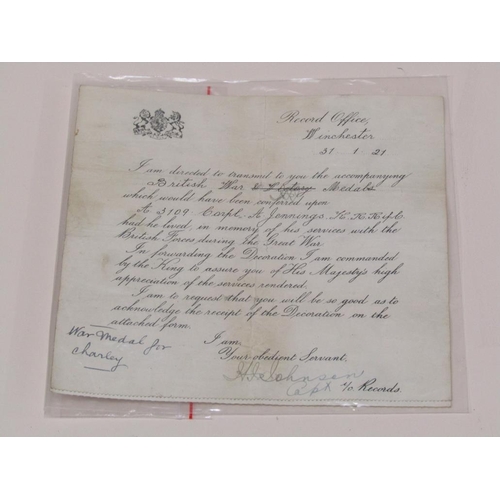 Record Office,
Winchester
31 . 1 . 21
I am directed to transmit to you the accompanying
British War & Victory Medals
which would have been conferred upon
A 3109 Corpl. A Jennings. K.R.Rif.C.
had he lived, in memory of his services with the
British Forces during the Great War
In forwarding the Decoration I am commanded
by the King to assure you of His Majesty's high
appreciation of the services rendered.
I am to request that you will be so good as to
acknowledge the receipt of the Decoration on the
attached form.
I am,
Your obedient Servant,
Johnson
Capt. i/c Records.
War Medal for
Charley